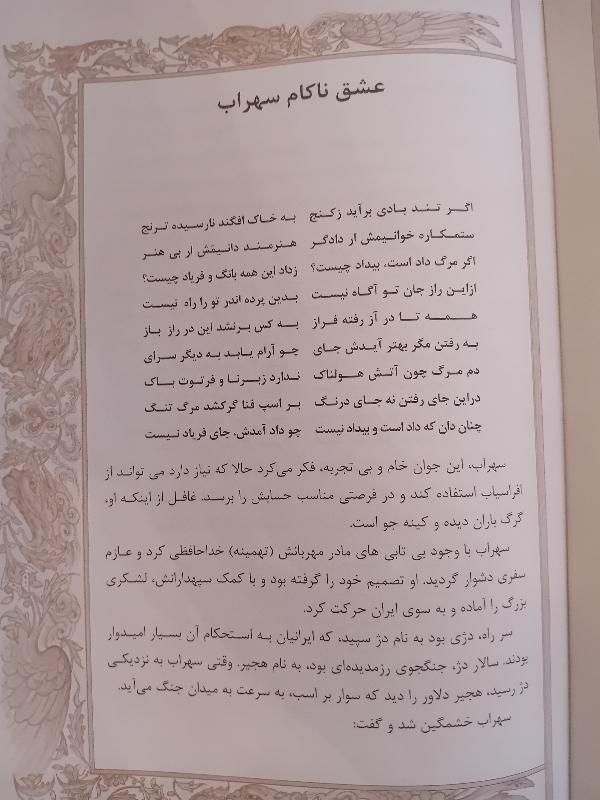 عشق ناکام سهراب
اگر تند بادی برآید زکنج به خاک افگند نارسیده ترنج
ستمکاره خوانیمش ار دادگر هنرمند دانیمش ار بی هنر
اگر مرگ داد است، بیداد چیست؟ زداد این همه بانگ و فریاد چیست؟
ازاین راز جان تو آگاه نیست بدین پرده اندر تو را راه نیست
همه تا در آز رفته فراز به کس برنشد این در راز باز
به رفتن مگر بهتر آیدش جای چو آرام یابد به دیگر سرای
دم مرگ چون آتش هولناک ندارد زبرنا و فرتوت باک
دراین جای رفتن نه جای درنگ بر اسپ فنا گرکشد مرگ تنگ
چنان دان که داد است و بیداد نیست چو داد آمدش، جای فریاد نیست
سهراب، این جوان خام و بی تجربه، فکر می‌کرد حالا که نیاز دارد می تواند از
افراسیاب استفاده کند و در فرصتی مناسب حسابش را برسد. غافل از اینکه او،
گرگ باران دیده و کینه جو است.
سهراب با وجود بی تابی های مادر مهربانش (تهمینه) خداحافظی کرد و عازم
سفری دشوار گردید. او تصمیم خود را گرفته بود و با کمک سپهدارانش، لشکری
بزرگ را آماده و به سوی ایران حرکت کرد.
سر راه، دژی بود به نام دژ سپید، که ایرانیان به استحکام آن بسیار امیدوار
بودند. سالار دژ، جنگجوی رزمدیده‌ای بود، به نام هجیر. وقتی سهراب به نزدیکی
دژ رسید، هجیر دلاور را دید که سوار بر اسب، به سرعت به میدان جنگ می‌آید.
سهراب خشمگین شد و گفت: